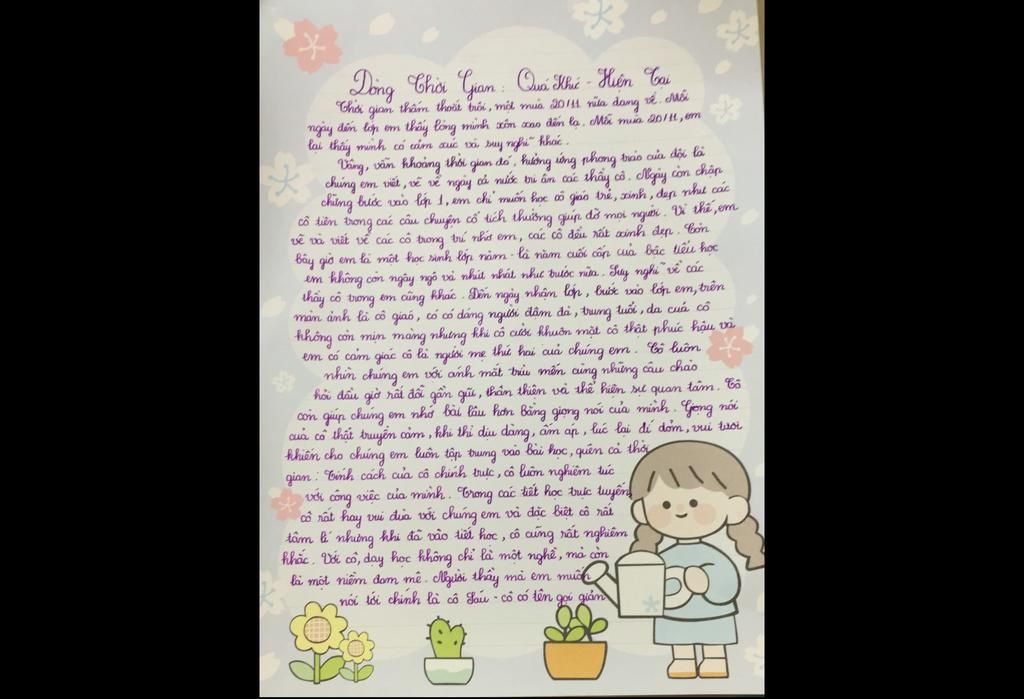 Dòng Thời Gian : Quá Khứ - Hiện Tại
Thời gian thấm thoắt trôi, một mùa 20/11 nữa đang về. Mỗi
ngày đến lớp em thấy lòng mình xôn xao đến lạ. Mỗi mùa 20/11, em
lại thấy mình có cảm xúc và suy nghĩ khác.
Vâng, vẫn khoảng thời gian đó, hưởng ứng phong trào của đội là
chúng em viết, vẽ về ngày cả nước tri ân các thầy cô. Ngày còn chập
chững bước vào lớp 1, em chỉ muốn học cô giáo trẻ, xinh, đẹp như các
cô tiên trong các câu chuyện cổ tích thường giúp đỡ mọi người. Vì thế, em
vẽ và viết về các cô trong trí nhớ em, các cô đều rất xinh đẹp. Còn
bây giờ em là một học sinh lớp năm - là năm cuối cấp của bậc tiểu học
em không còn ngây ngô và nhút nhát như trước nữa. Suy nghĩ về các
thầy cô trong em cũng khác. Đến ngày nhận lớp, bước vào lớp em, trên
màn ảnh là cô giáo, cô có dáng người đậm đà, trung tuổi, da của cô
không còn mịn màng nhưng khi cô cười khuôn mặt cô thật phúc hậu và
em có cảm giác cô là người mẹ thứ hai của chúng em. Cô luôn
nhìn chúng em với ánh mắt trìu mến cùng những câu chào
hỏi đầu giờ rất đỗi gần gũi, thân thiện và thể hiện sự quan tâm. Cô
còn giúp chúng em nhớ bài lâu hơn bằng giọng nói của mình. Giọng nói
của cô thật truyền cảm, khi thì dịu dàng, ấm áp, lúc lại dí dỏm, vui tươi
khiến cho chúng em luôn tập trung vào bài học, quên cả thời
gian. Tính cách của cô chính trực, cô luôn nghiêm túc
với công việc của mình. Trong các tiết học trực tuyến,
cô rất hay vui đùa với chúng em và đặc biệt cô rất
tâm lí nhưng khi đã vào tiết học, cô cũng rất nghiêm
khắc. Với cô, dạy học không chỉ là một nghề, mà còn
là một niềm đam mê. Người thầy mà em muốn
nói tới chính là cô Sáu - cô có tên gọi giản